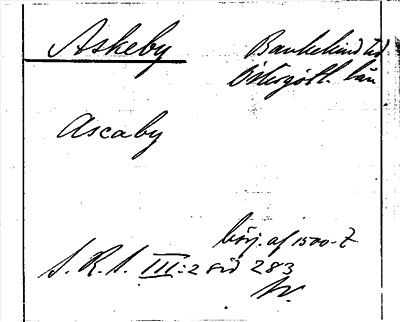 Askeby
Bankekind hd
Östergötl. län
Ascaby
börj. af 1500-t
S. R. S. III:2 sid 283
W.